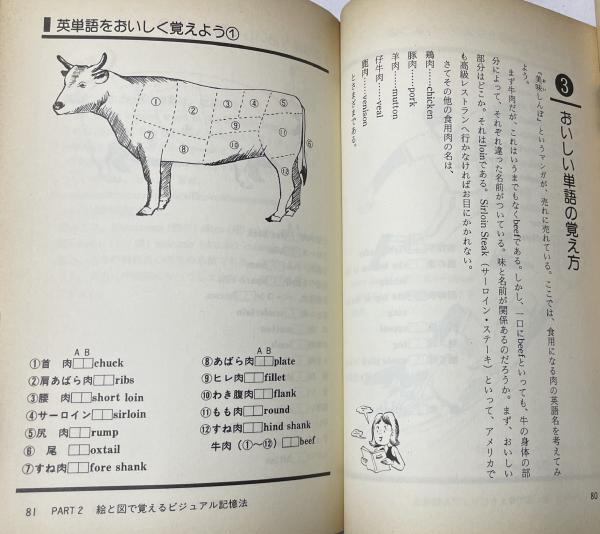 ❸ おいしい単語の覚え方
『美味しんぼ』というマンガが、売れに売れている。ここでは、食用になる肉の英語名を考えてみ
よう。
まず牛肉だが、これはいうまでもなくbeefである。しかし、一口にbeefといっても、牛の身体の部
分によって、それぞれ違った名前がついている。味と名前が関係あるのだろうか。まず、おいしい
部分はどこか。それはloinである。Sirloin Steak（サーロイン・ステーキ）といって、アメリカで
も高級レストランへ行かなければお目にかかれない。
さてその他の食用肉の名は、
鶏肉……chicken
豚肉……pork
羊肉……mutton
仔牛肉……veal
鹿肉……venison
とさまざまである。
80
英単語をおいしく覚えよう①
① ② ③ ④ ⑤
⑦ ⑧ ⑨ ⑩ ⑪ ⑥
⑫
A B
①首 肉□□chuck
②肩あばら肉□□ribs
③腰 肉□□short loin
④サーロイン□□sirloin
⑤尻 肉□□rump
⑥ 尾 □□oxtail
⑦すね肉□□fore shank
A B
⑧あばら肉□□plate
⑨ヒレ肉□□fillet
⑩わき腹肉□□flank
⑪もも肉□□round
⑫すね肉□□hind shank
牛肉（①〜⑫）□□beef
81 PART2 絵と図で覚えるビジュアル記憶法